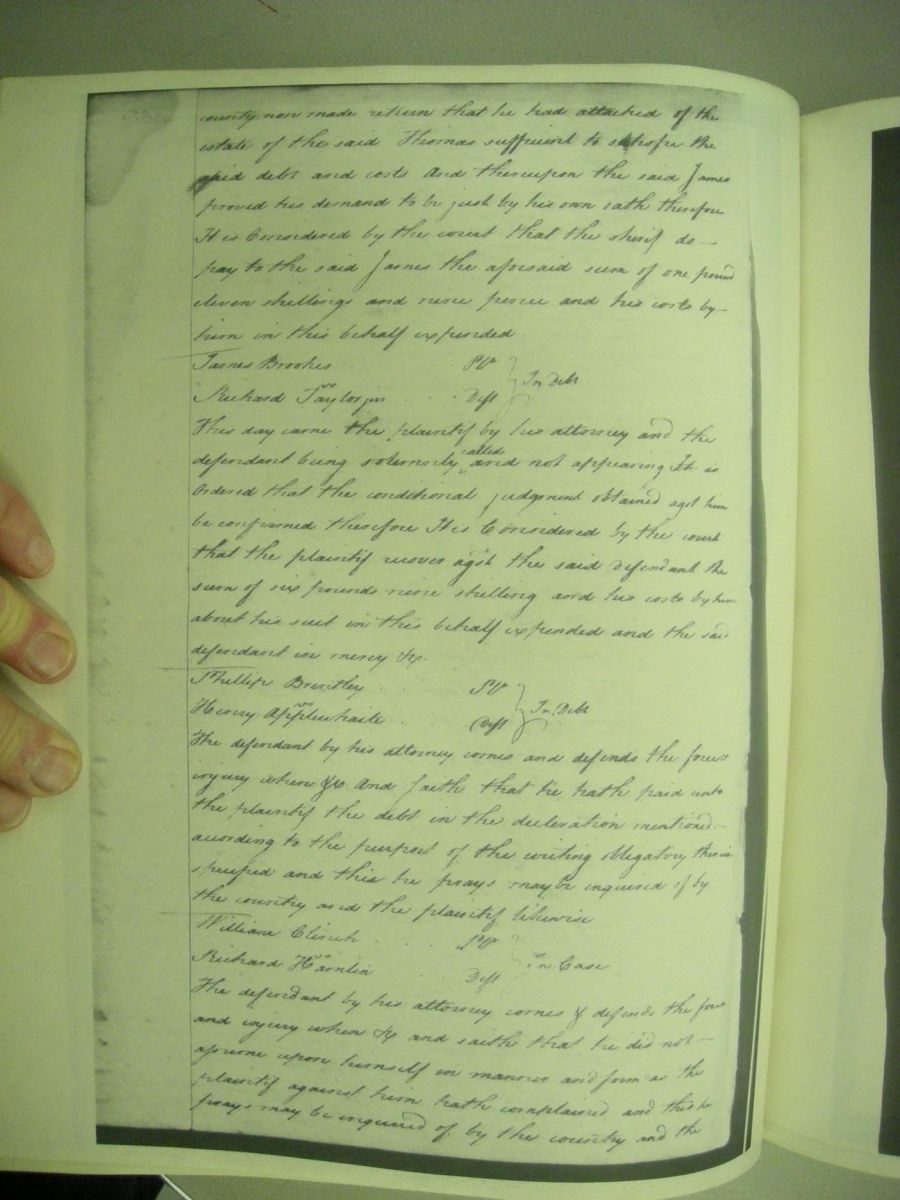 county now made return that he had attached of the
estate of the said Thomas sufficient to satisfie the
said debt and costs and thereupon the said James
proved his demand to be just by his own oath therefore
It is Considered by the court that the sherif do
pay to the said James the aforsaid sum of one pound
eleven shillings and nine pence and his costs by
him in this behalf expended
James Brookes Plt
In Debt
Richard Taylor jun Deft
vs
This day came the plaintif by his attorney and the
defendant being solemnly called and not appearing It is
Ordered that the conditional judgment obtained agst him
be confirmed therefore It is Considered by the court
that the plaintif recover agst the said defendant the
sum of six pounds nine shilling and his costs by him
about his suit in this behalf expended and the said
defendant in mercy &c.
Phillip Brintley Plt
In Debt
Henry Applewhaite Deft
vs
The defendant by his attorney comes and defends the force &
injury when &c And saith that he hath paid unto
the plaintif the debt in the decleration mentioned
acording to the purport of the writing obligatory therein
specified and this he prays may be inquired of by
the country and the plaintif likewise
William Clinch Plt
In Case
Richard Hamlin Deft
vs
The defendant by his attorney comes & defends the force
and injury when &c and saith that he did not
assume upon himself in manner and form as the
plaintif against him hath complained and this he
prays may be inquired of by the country and the